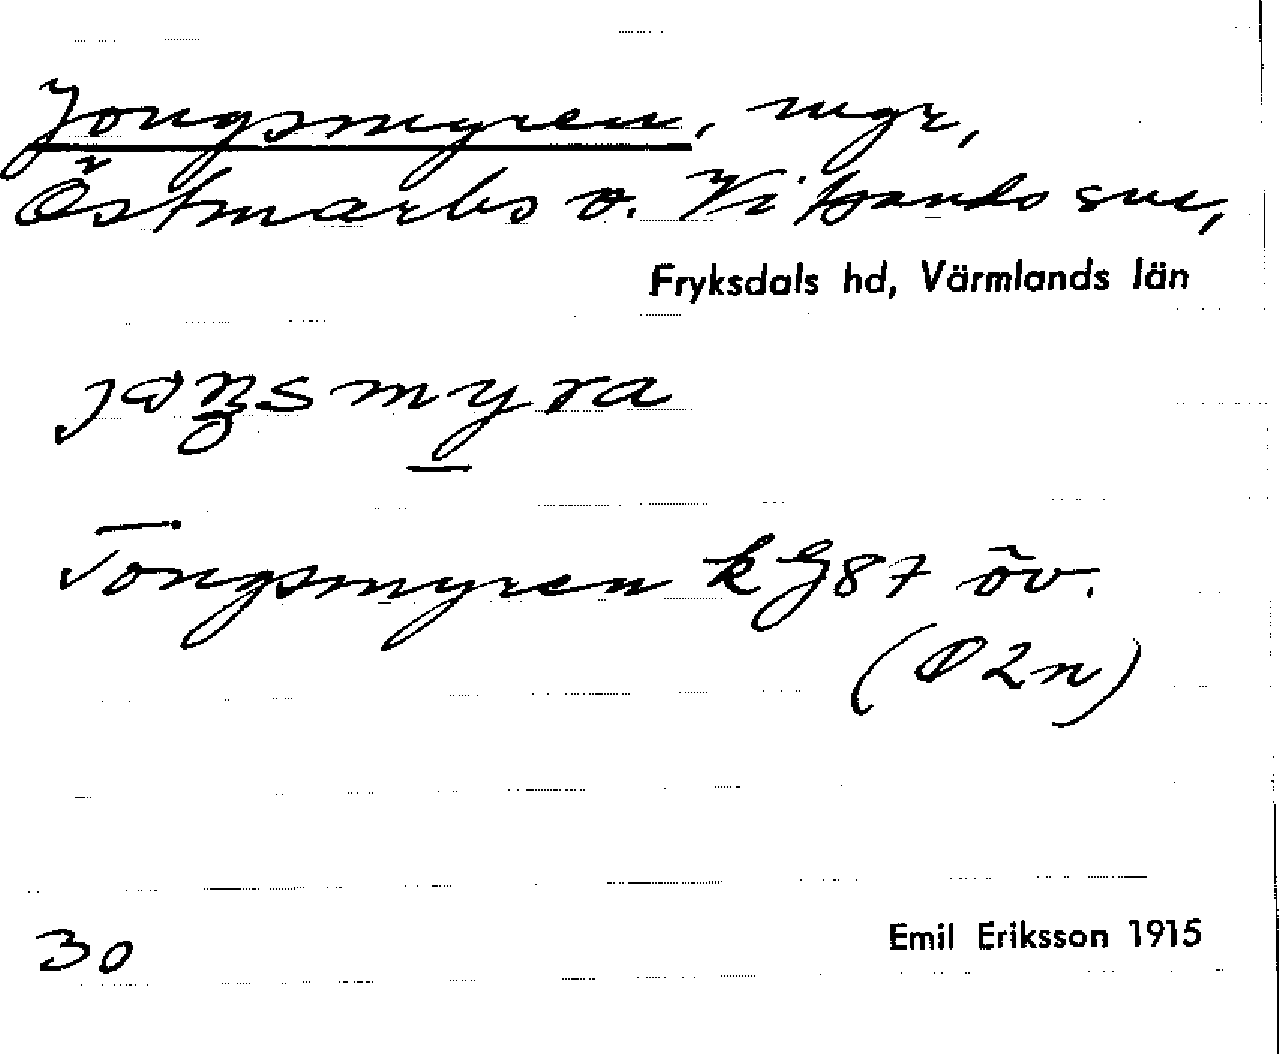 Jongsmyren, myr,
Östmarks o. Vitsands snr,
Fryksdals hd, Värmlands län
Tongsmyren k G87 öv.
(Ö2n)
30
Emil Eriksson 1915